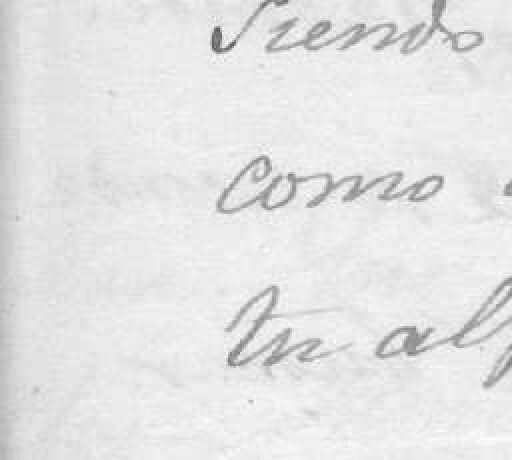 Siendo
como
tu alf